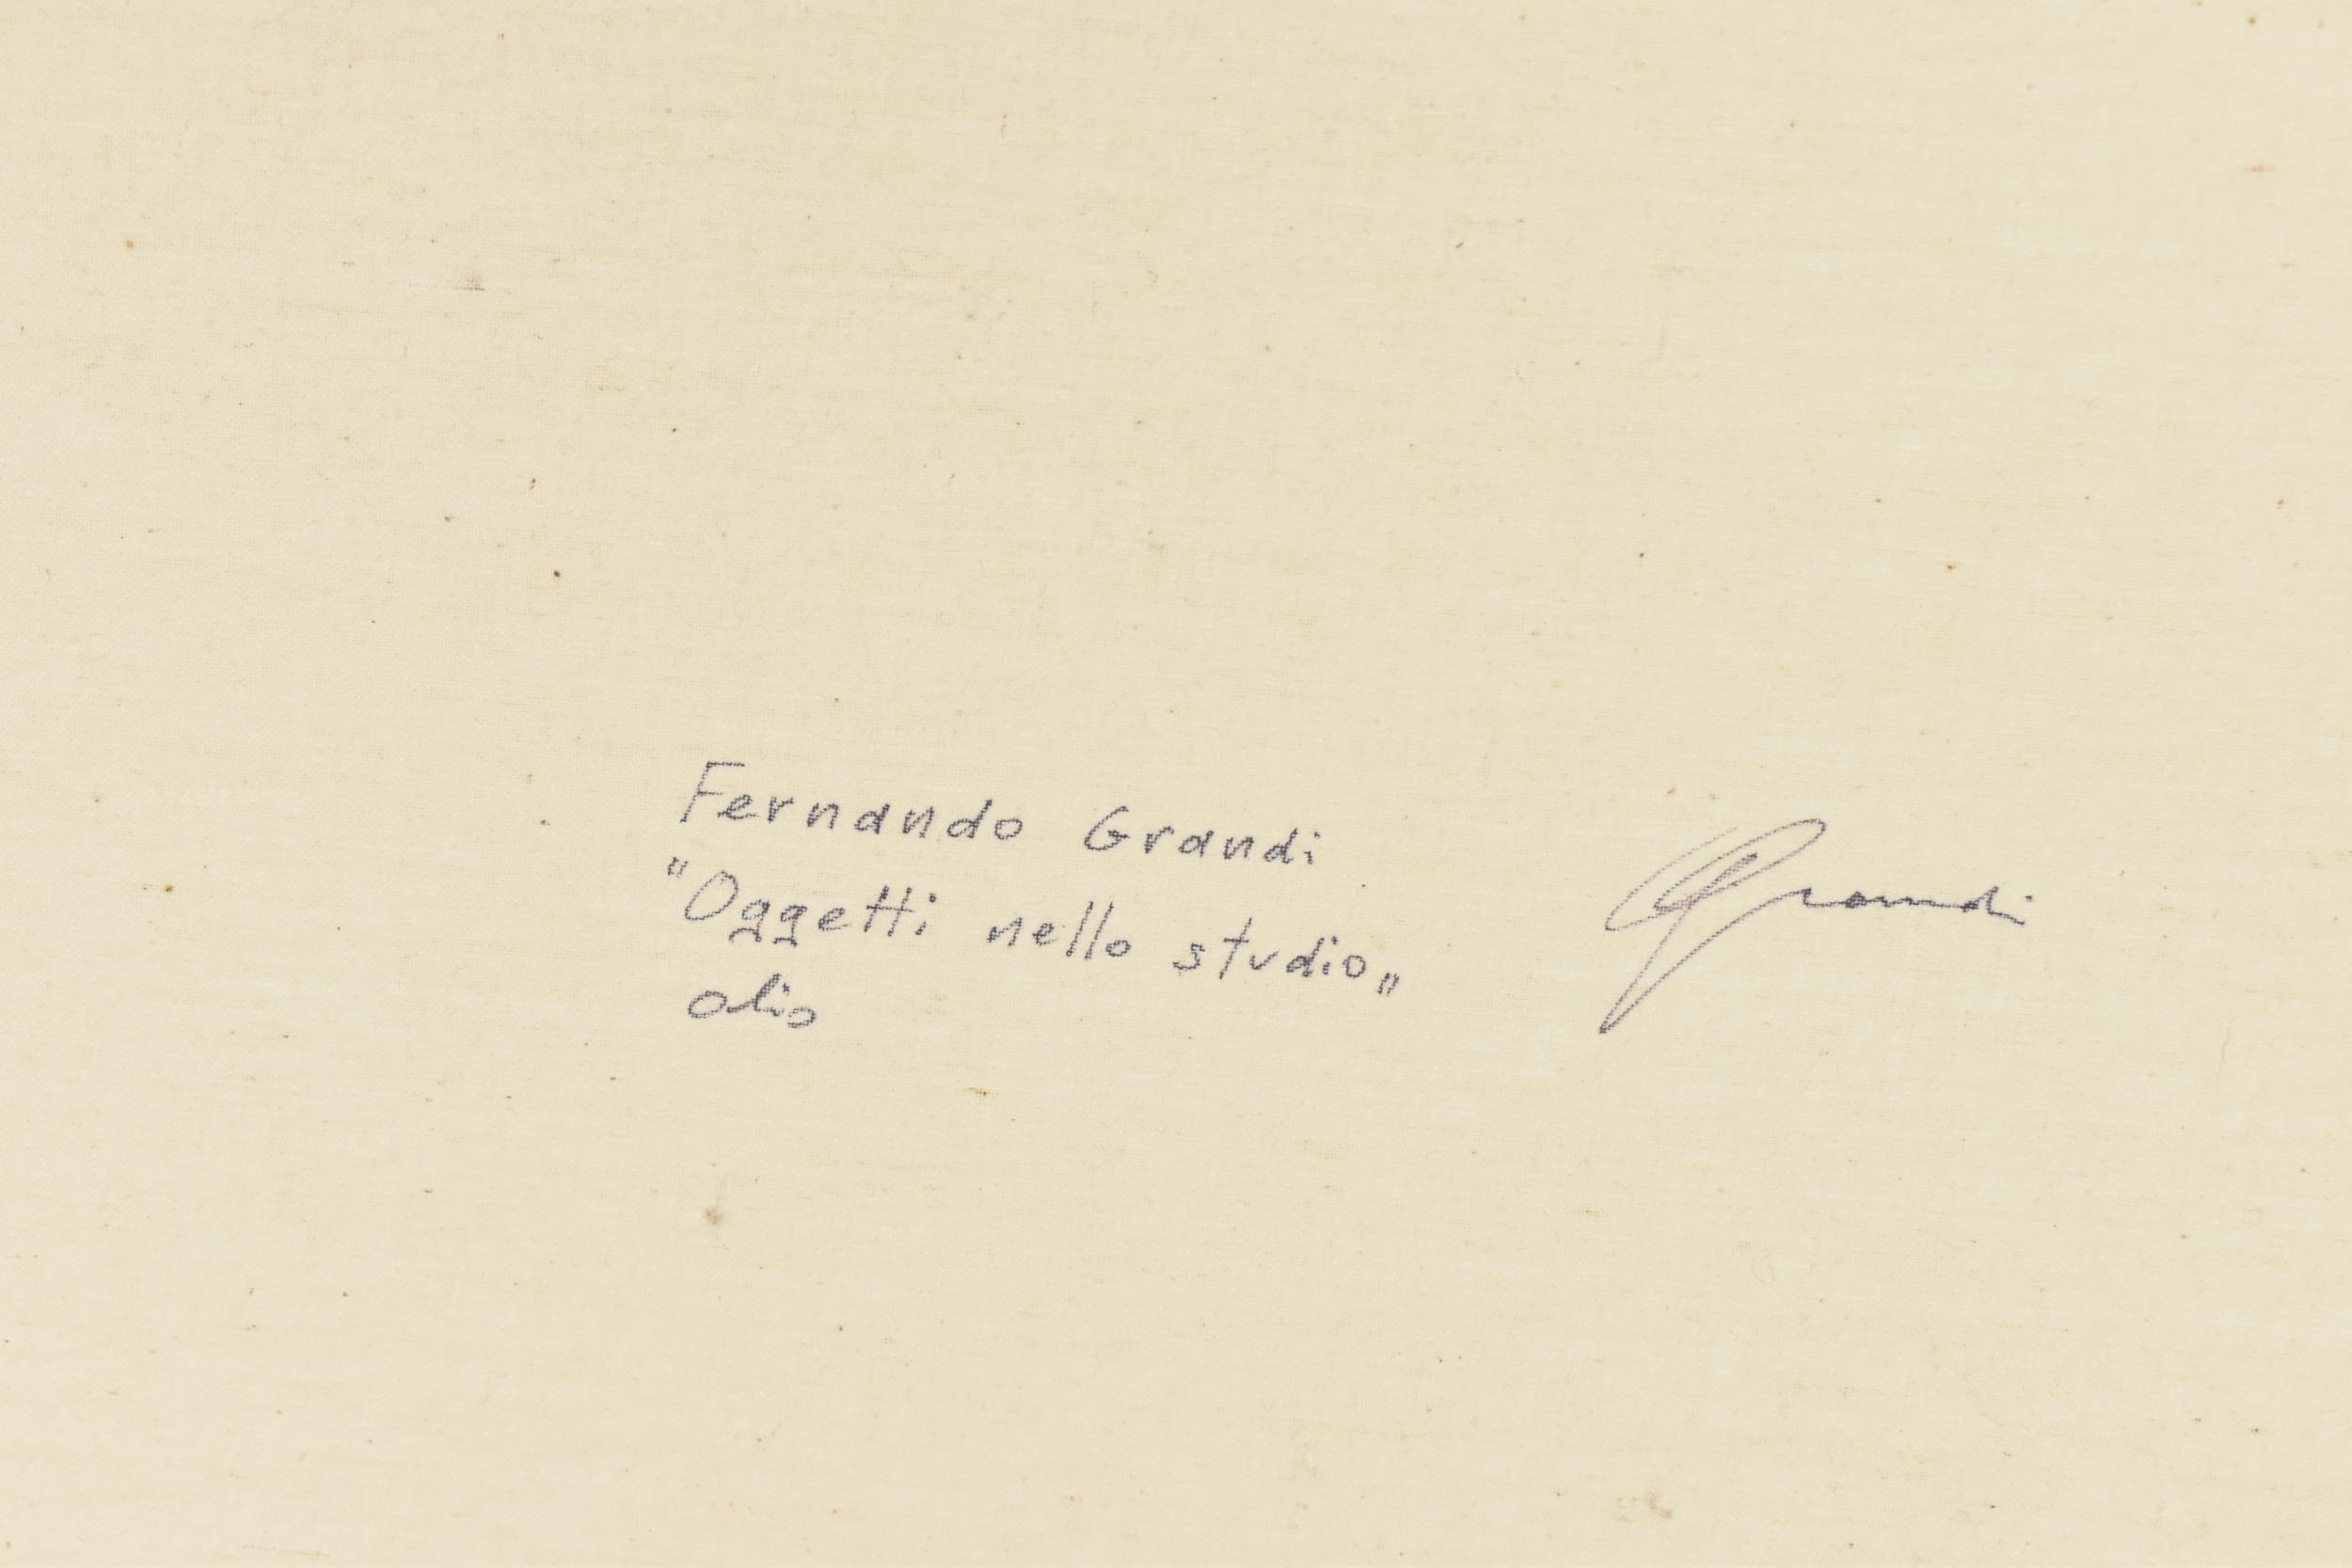 Fernando Grandi
"Oggetti nello studio„
olio
Grandi